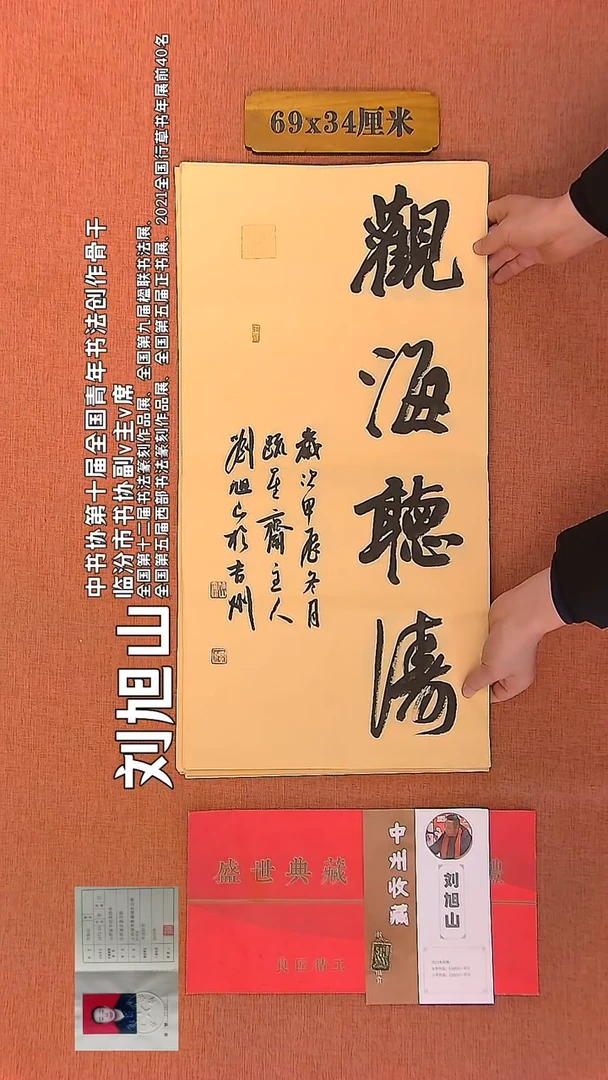 69x34厘米
觀海聽濤
歲次甲辰冬月
疏星齋主人
劉旭山於吉州
刘旭山
中书协第十届全国青年书法创作骨干
临汾市书协副v主v席
全国第十二届书法篆刻作品展、全国第九届楹联书法展、
全国第五届西部书法篆刻作品展、全国第五届正书展、2021全国行草书年展前40名
盛世典藏
中州收藏
刘旭山